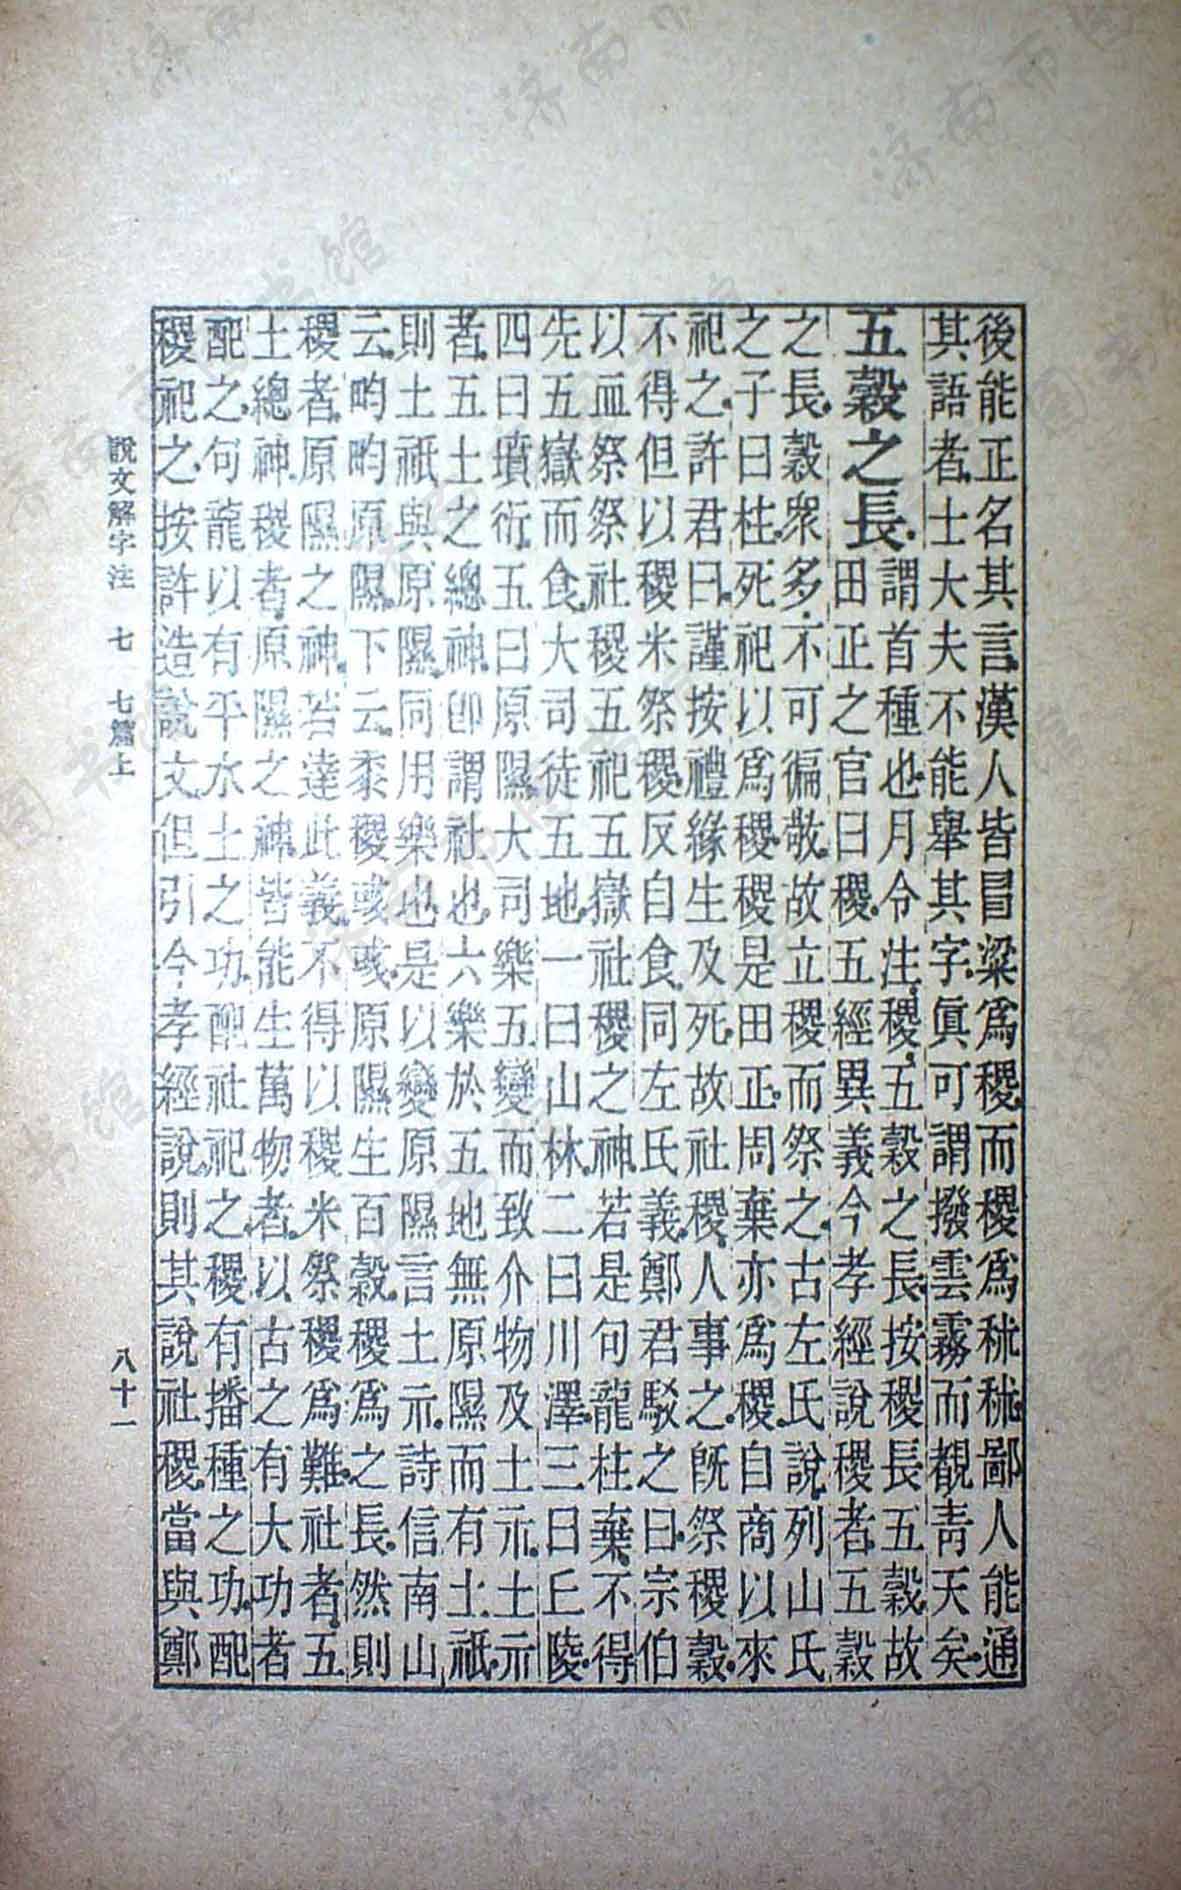 後能正名其言。漢人皆冒粱爲稷。而稷爲秫秫。鄙人能通
其語者。士大夫不能舉其字。眞可謂撥雲霧而覩青天矣。
五穀之長。
謂首種也。月令注。稷。五穀之長。按稷長五穀。故
田正之官曰稷。五經異義今孝經說稷者。五穀
之長。穀衆多。不可徧敬。故立稷而祭之。古左氏說。列山氏
之子曰柱。死祀以爲稷。稷是田正。周棄亦爲稷。自商以來
祀之。許君曰。謹按禮緣生及死。故社稷。人事之。旣祭稷穀。
不得但以稷米祭稷。反自食。同左氏義。鄭君駁之曰。宗伯
以血祭祭社稷五祀五嶽。社稷之神。若是句龍柱棄。不得
先五嶽而食。大司徒五地。一曰山林。二曰川澤。三曰丘陵。
四曰墳衍。五曰原隰。大司樂五變而致介物及土示。土示
者。五土之總神。卽謂社也。六樂於五地無原隰而有土祇。
則土祇與原隰同用樂也。是以變原隰言土示。詩信南山
云。畇畇原隰。下云。黍稷彧彧。原隰生百穀。稷爲之長。然則
稷者。原隰之神。若達此義。不得以稷米祭稷爲難。社者。五
土總神。稷者。原隰之神。皆能生萬物者。以古之有大功者
配之。句龍以有平水土之功。配社祀之。稷有播種之功。配
稷祀之。按許造說文。但引今孝經說。則其說社稷。當與鄭
說文解字注 七 七篇上 八十一